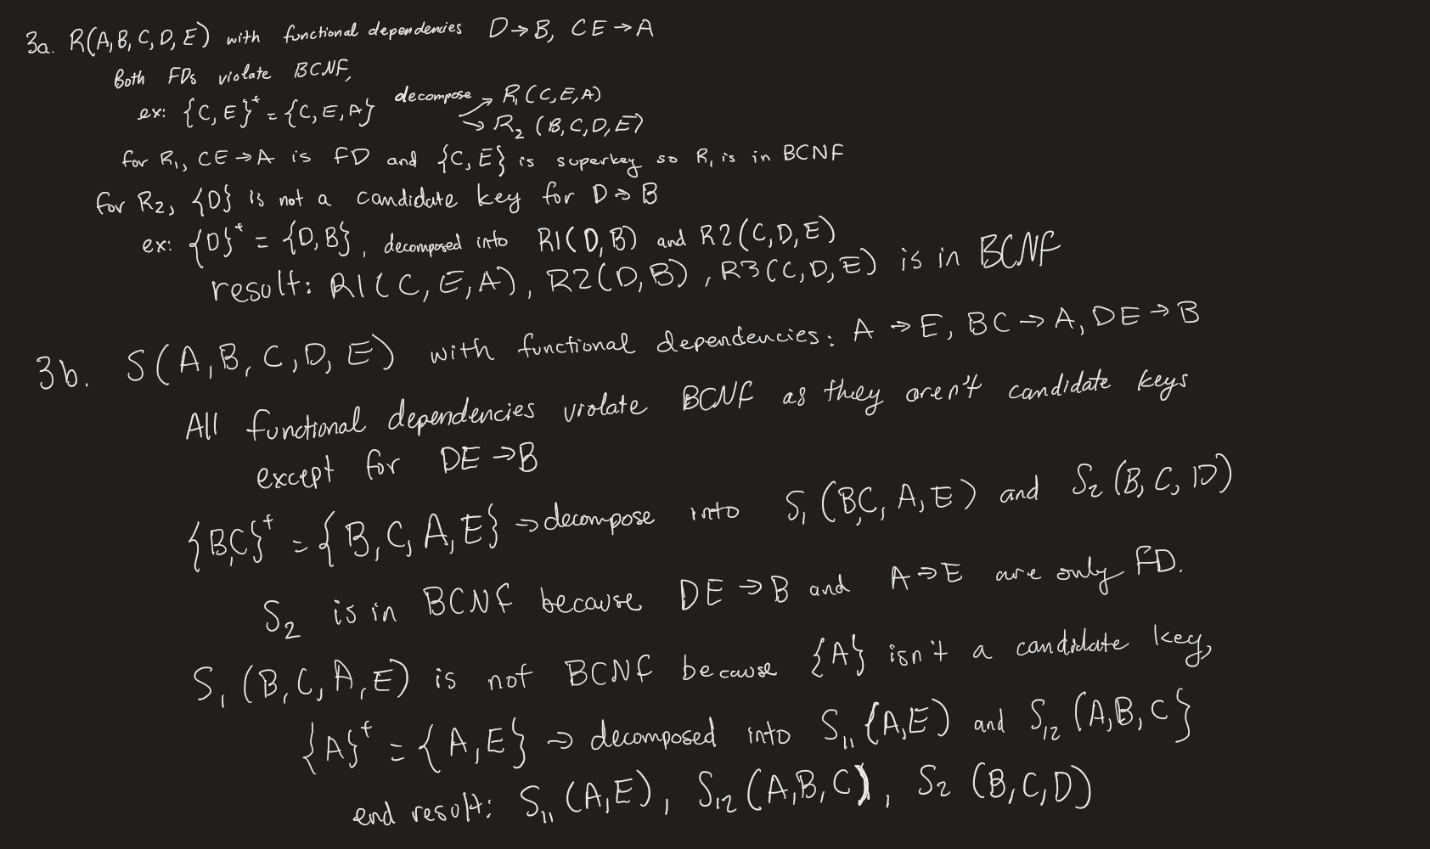 3a. R(A,B,C,D,E) with functional dependencies D→B, CE→A
Both FDs violate BCNF,
ex: {C,E}⁺ = {C,E,A} decompose → R₁(C,E,A)
→ R₂ (B,C,D,E)
for R₁, CE→A is FD and {C,E} is superkey so R₁ is in BCNF
for R₂, {D} is not a candidate key for D→B
ex: {D}⁺ = {D,B}, decomposed into R1(D,B) and R2(C,D,E)
result: R1(C,E,A), R2(D,B), R3(C,D,E) is in BCNF
3b. S(A,B,C,D,E) with functional dependencies: A→E, BC→A, DE→B
All functional dependencies violate BCNF as they aren't candidate keys
except for DE→B
{B,C}⁺ = {B,C,A,E} → decompose into S₁ (B,C,A,E) and S₂ (B,C,D)
S₂ is in BCNF because DE→B and A→E are only FD.
S₁ (B,C,A,E) is not BCNF because {A} isn't a candidate key,
{A}⁺ = {A,E} → decomposed into S₁₁ (A,E) and S₁₂ (A,B,C}
end result: S₁₁ (A,E), S₁₂ (A,B,C), S₂ (B,C,D)